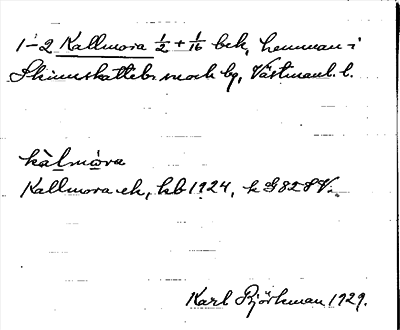 1-2 Kallmora ½ + 1/16 bek, hemman i
Skinnskattebs. sock bg, Västmanl. l.
kàlmòra
Kallmora ek, kb 1924, k G 82 S V.
Karl Björkman 1929.